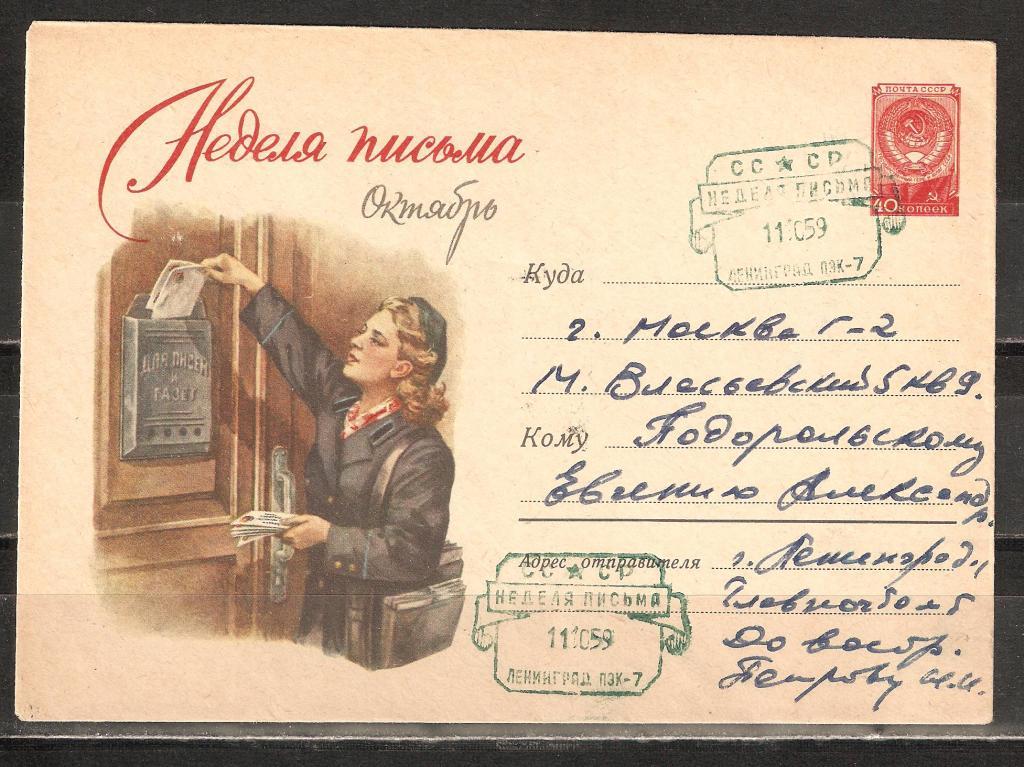 Неделя письма
Октябрь
ПОЧТА СССР
40 КОПЕЕК
СС ★ СР
НЕДЕЛЯ ПИСЬМА
11 10 59
ЛЕНИНГРАД ПЭК-7
ДЛЯ ПИСЕМ
И
ГАЗЕТ
Куда
г. Москва Г-2
М. Власьевский 5 кв 9.
Кому
Евгению Александр.
Адрес отправителя г. Ленинград,
Главпочтамт
До востр.
Петрову И.И.
СС ★ СР
НЕДЕЛЯ ПИСЬМА
11 10 59
ЛЕНИНГРАД ПЭК-7